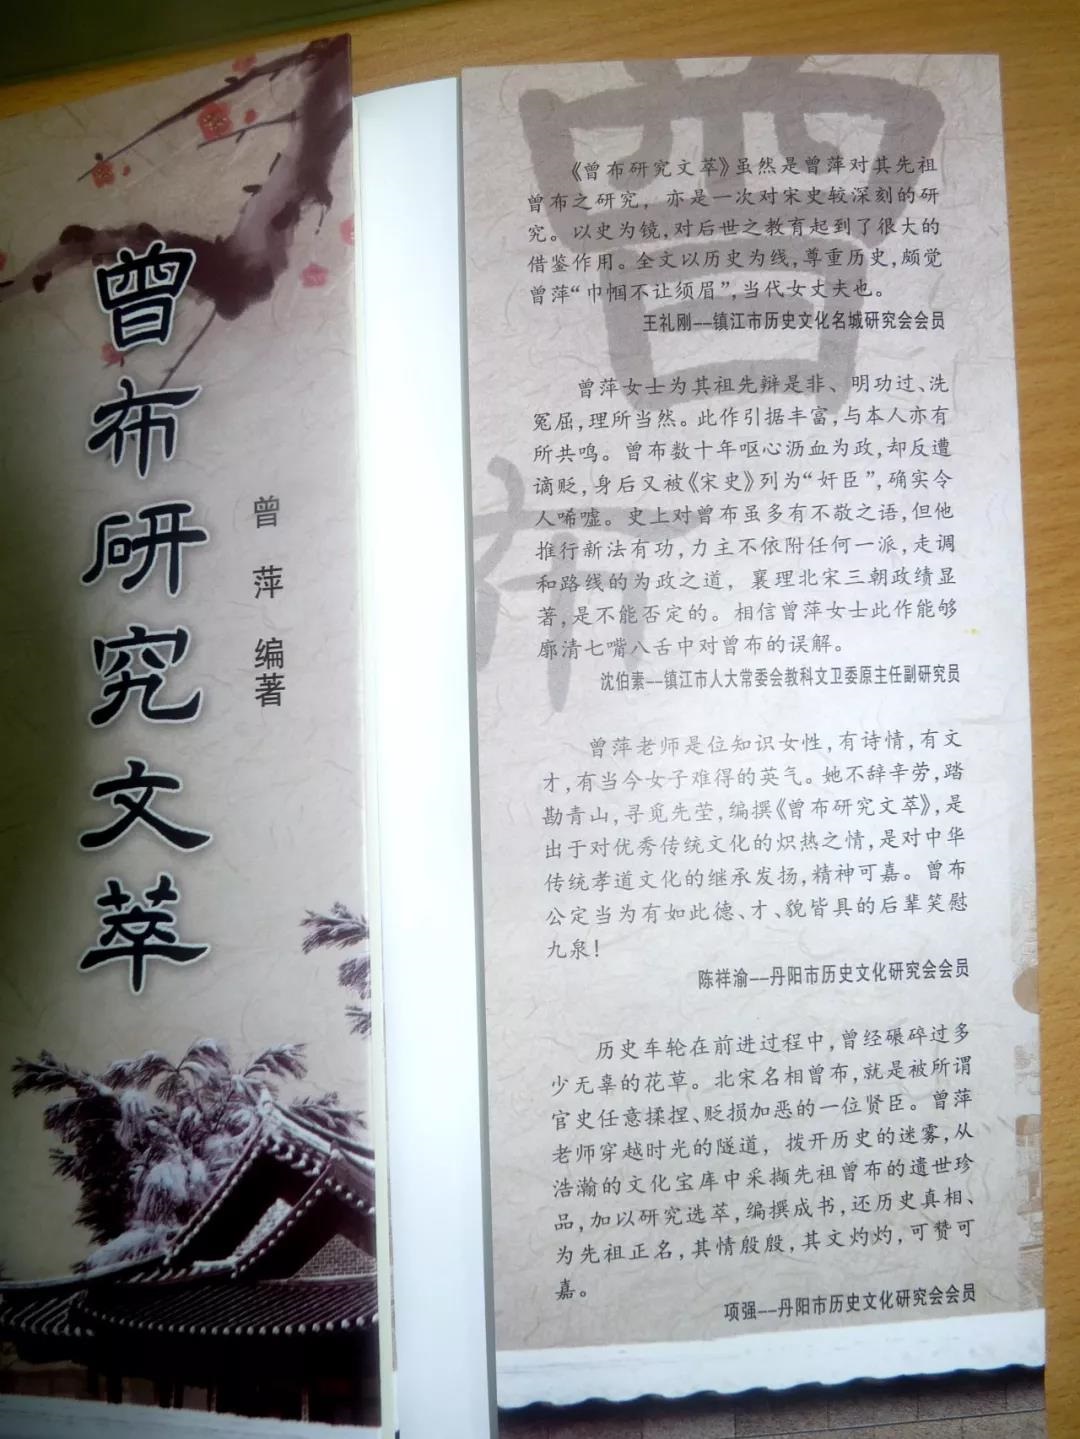 曾布研究文萃
曾萍 编著
曾
布
《曾布研究文萃》虽然是曾萍对其先祖
曾布之研究，亦是一次对宋史较深刻的研
究。以史为镜，对后世之教育起到了很大的
借鉴作用。全文以历史为线，尊重历史，颇觉
曾萍“巾帼不让须眉”，当代女丈夫也。
王礼刚--镇江市历史文化名城研究会会员
曾萍女士为其祖先辩是非、明功过、洗
冤屈，理所当然。此作引据丰富，与本人亦有
所共鸣。曾布数十年呕心沥血为政，却反遭
谪贬，身后又被《宋史》列为“奸臣”，确实令
人唏嘘。史上对曾布虽多有不敬之语，但他
推行新法有功，力主不依附任何一派，走调
和路线的为政之道，襄理北宋三朝政绩显
著，是不能否定的。相信曾萍女士此作能够
廓清七嘴八舌中对曾布的误解。
沈伯素--镇江市人大常委会教科文卫委原主任副研究员
曾萍老师是位知识女性，有诗情，有文
才，有当今女子难得的英气。她不辞辛劳，踏
勘青山，寻觅先茔，编撰《曾布研究文萃》，是
出于对优秀传统文化的炽热之情，是对中华
传统孝道文化的继承发扬，精神可嘉。曾布
公定当为有如此德、才、貌皆具的后辈笑慰
九泉！
陈祥渝--丹阳市历史文化研究会会员
历史车轮在前进过程中，曾经碾碎过多
少无辜的花草。北宋名相曾布，就是被所谓
官史任意揉捏、贬损加恶的一位贤臣。曾萍
老师穿越时光的隧道，拨开历史的迷雾，从
浩瀚的文化宝库中采撷先祖曾布的遗世珍
品，加以研究选萃，编撰成书，还历史真相、
为先祖正名，其情殷殷，其文灼灼，可赞可
嘉。
项强--丹阳市历史文化研究会会员